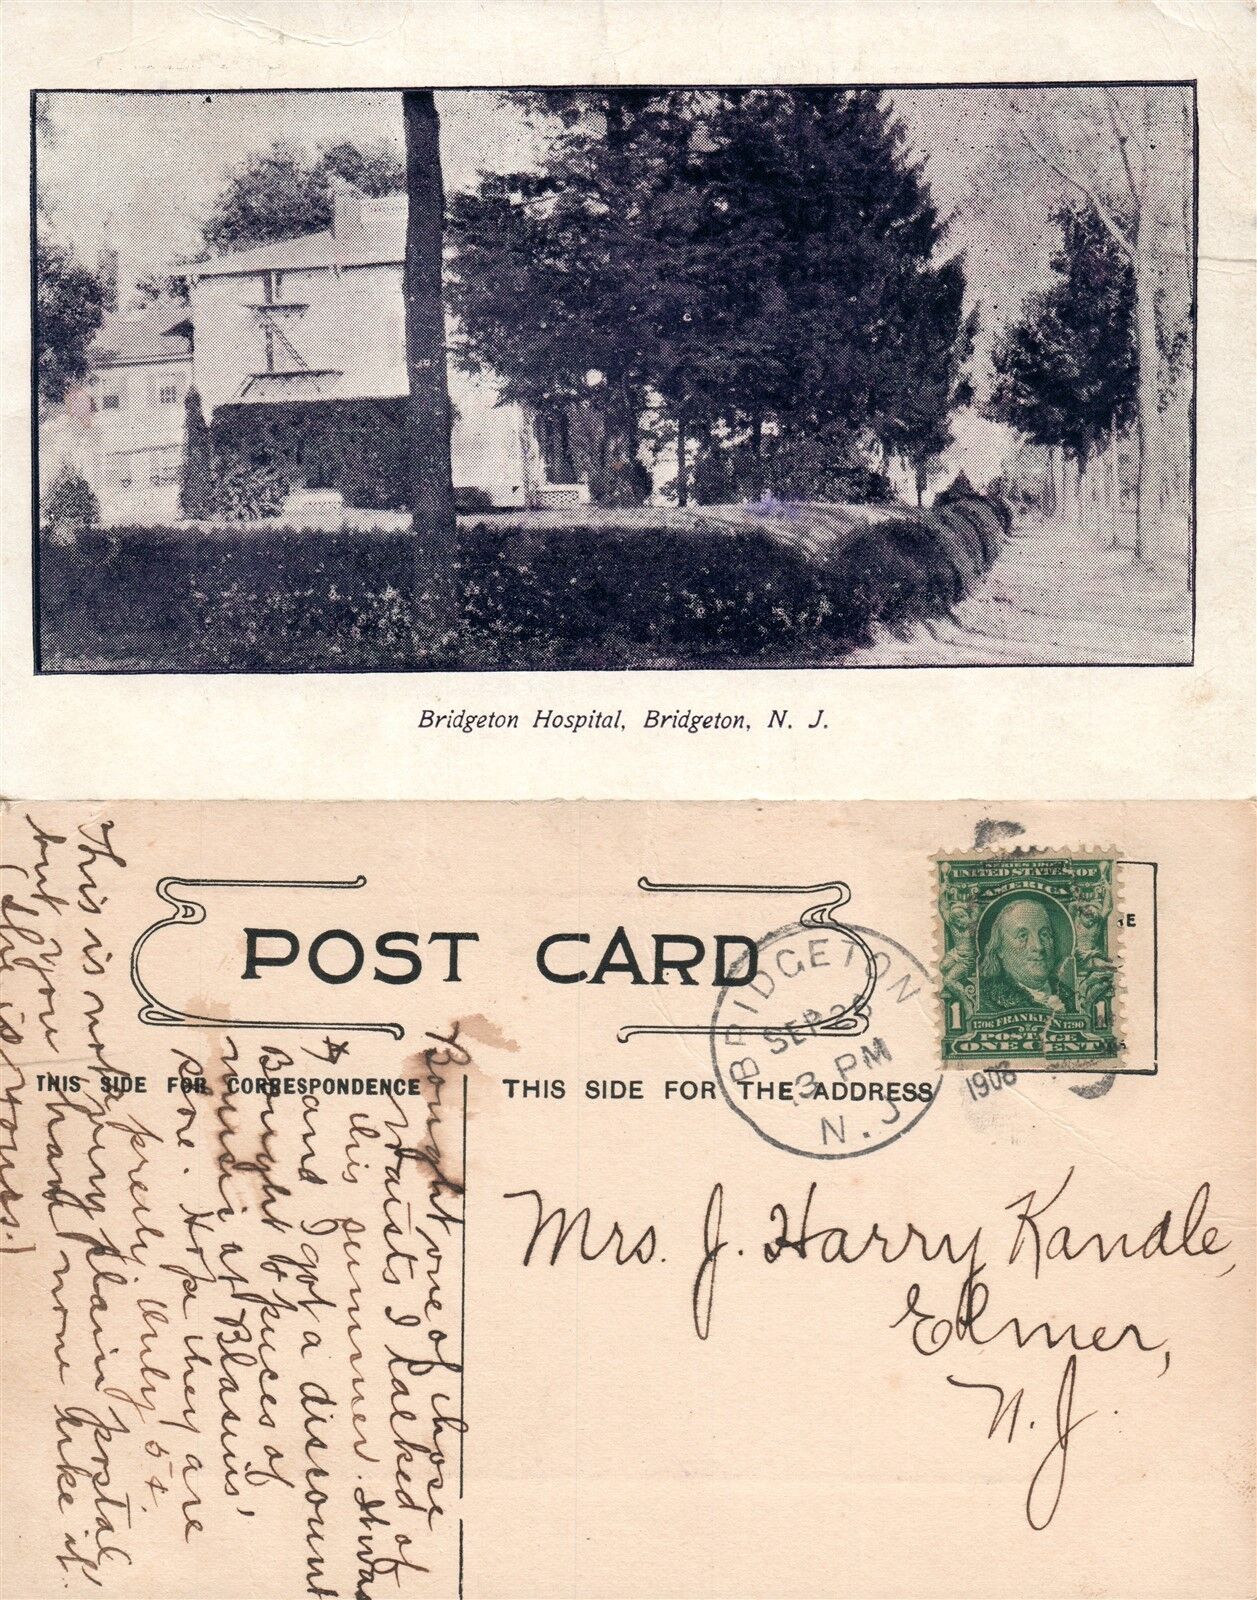 Bridgeton Hospital, Bridgeton, N. J.
POST CARD
THIS SIDE FOR CORRESPONDENCE
THIS SIDE FOR THE ADDRESS
BRIDGETON
SEP 26
3 PM
N. J.
1908
SERIES 1902
UNITED STATES OF
AMERICA
1 1
1706 FRANKLIN 1790
POSTAGE
ONE CENT
Mrs. J. Harry Kandle,
Elmer,
N. J.
Bought one of those
waists I talked of
this summer. It was
and I got a discount
Bought 2 pieces of
music at Blasius'
store. Hope they are
pretty. Only 5¢.
This is not a very plain postal
but you have none like it.
(She is yours.)